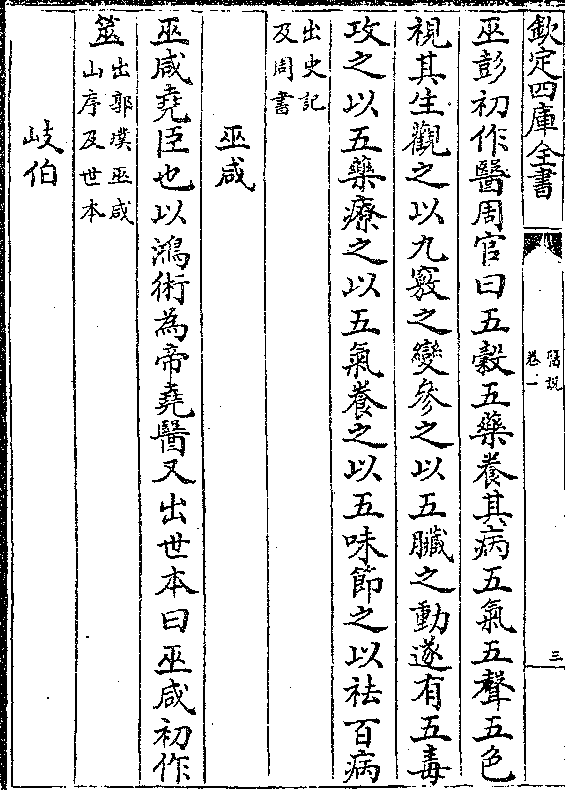 欽定四庫全書
醫說
卷一
三
巫彭初作醫周官曰五穀五藥養其病五氣五聲五色
視其生觀之以九竅之變參之以五臟之動遂有五毒
攻之以五藥療之以五氣養之以五味節之以祛百病
出史記
及周書
巫咸
巫咸堯臣也以鴻術為帝堯醫又出世本曰巫咸初作
筮
出郭璞巫咸
山序及世本
岐伯